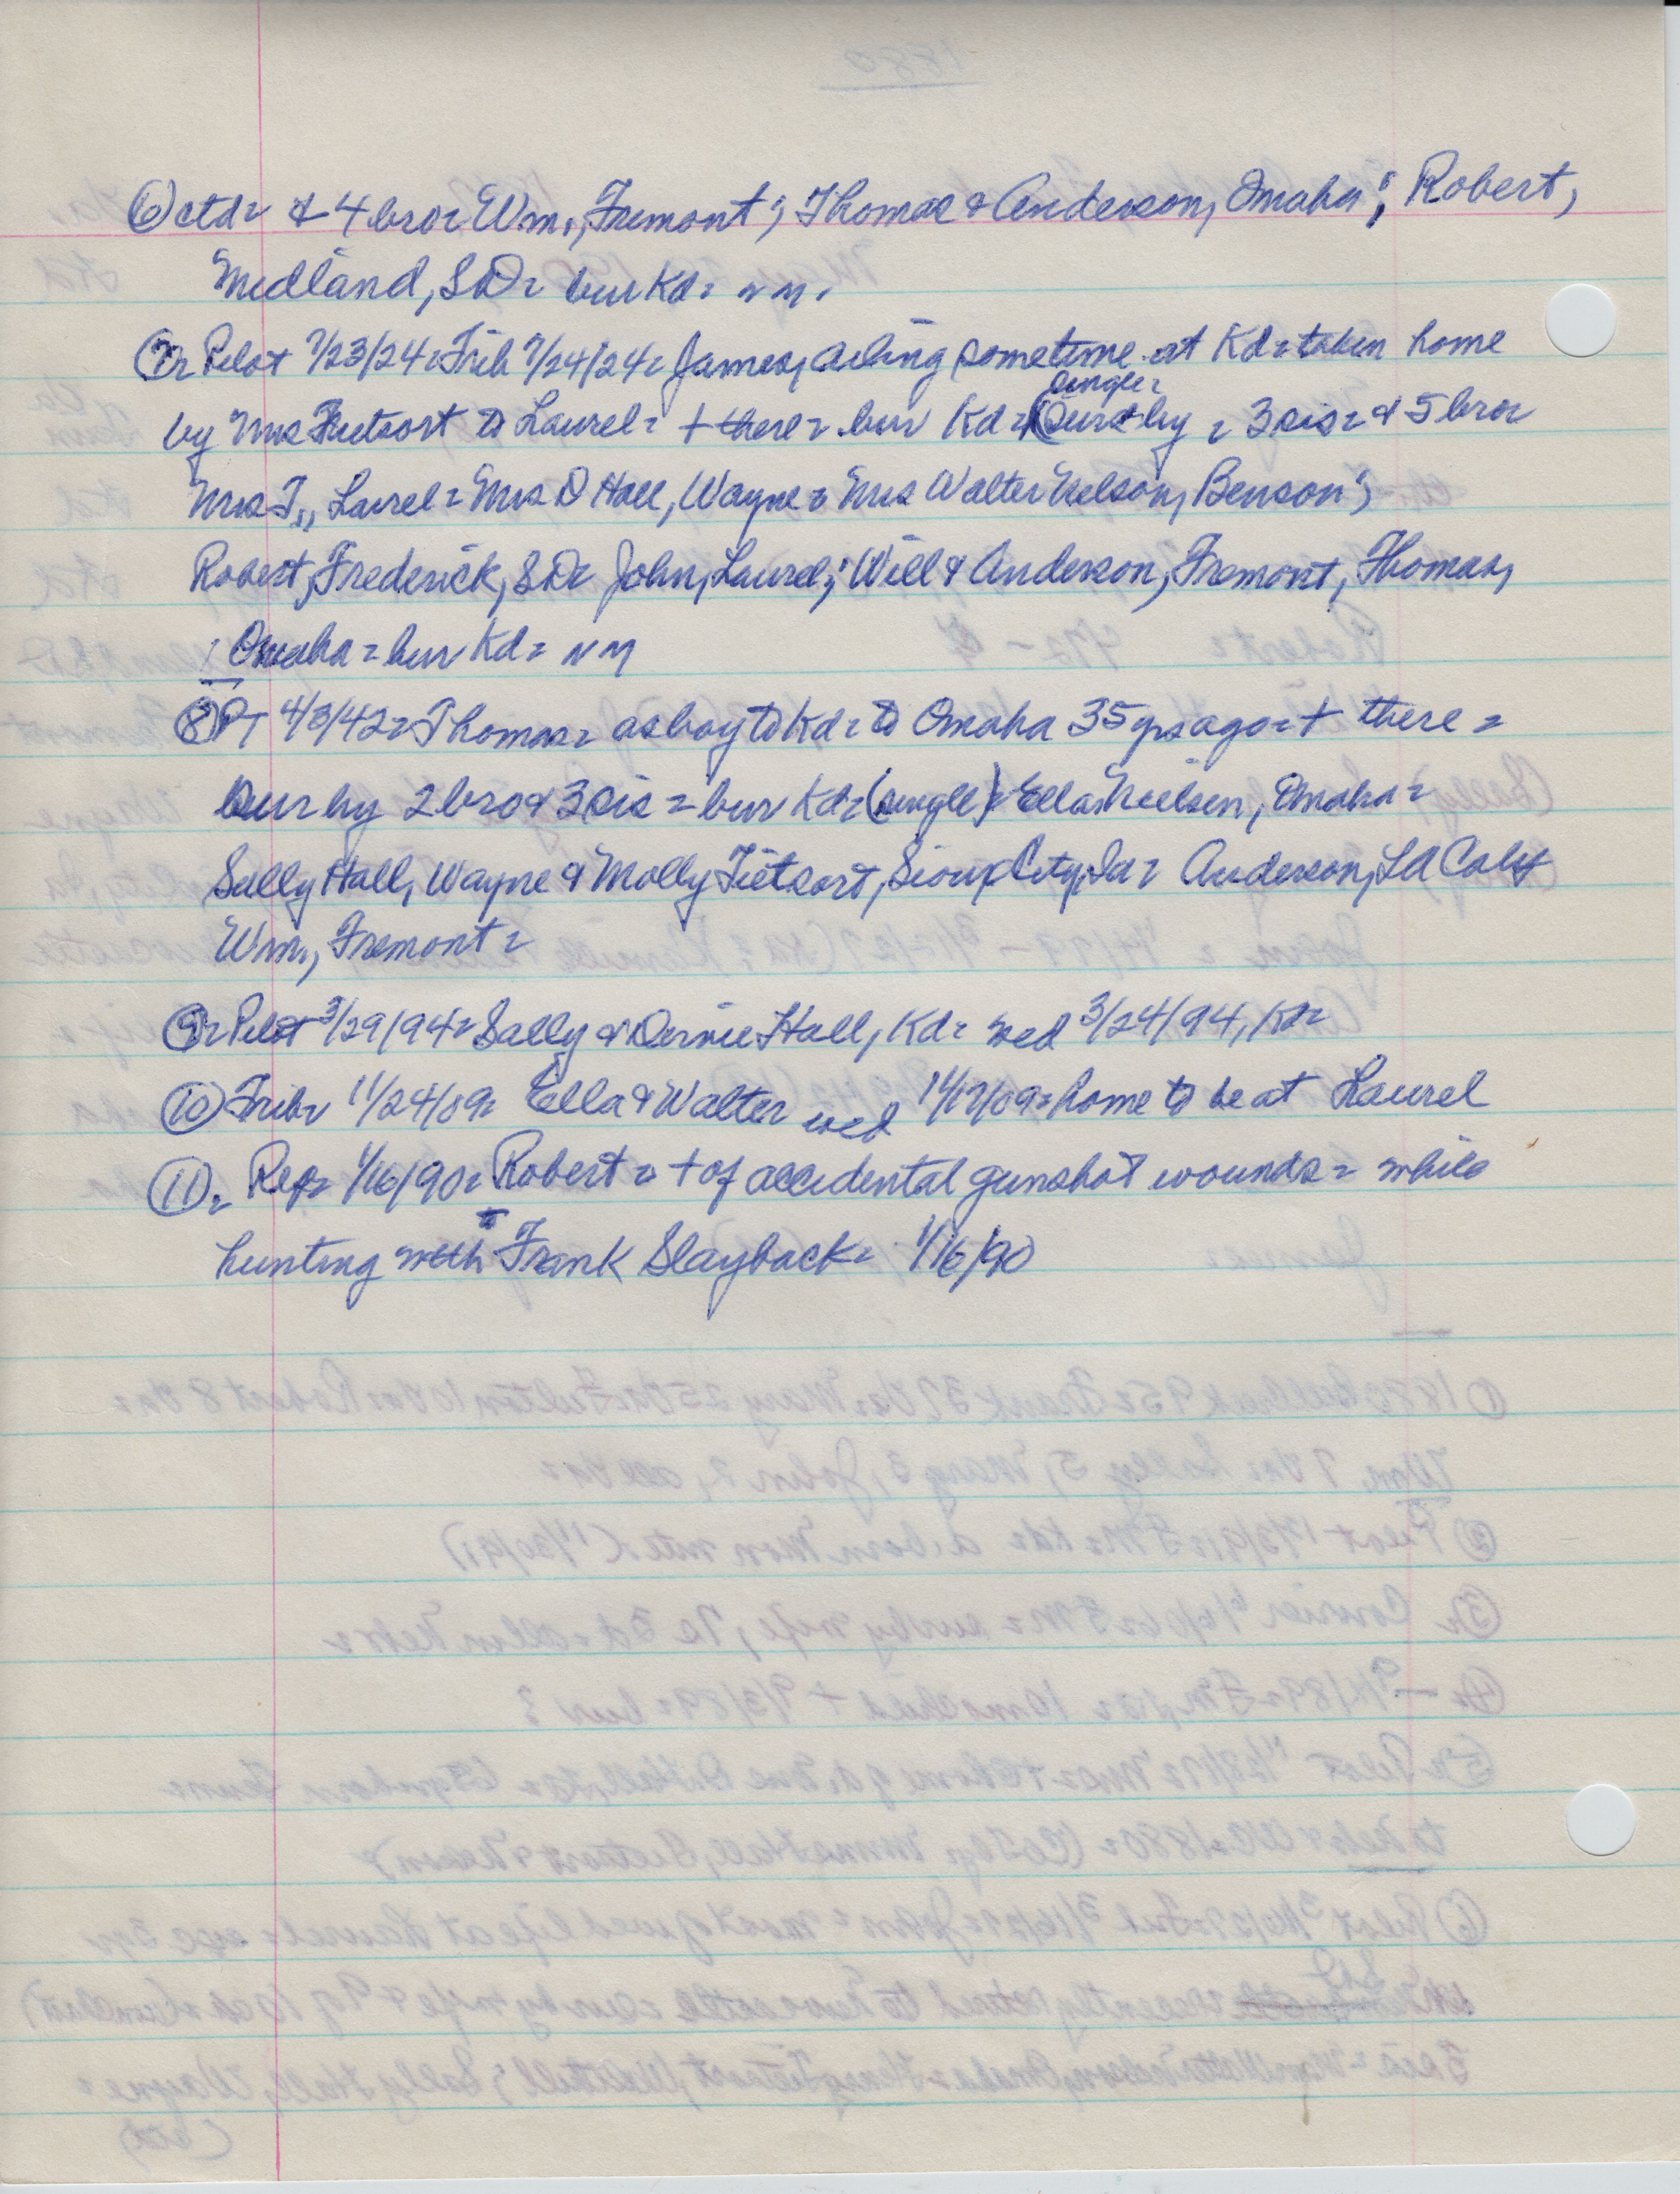 ⑥ ctd= & 4 bro= Wm., Fremont; Thomas & Anderson, Omaha; Robert,
Midland, SD= bur Kd= nm.
⑦= Pilot 7/23/24= Trib 7/24/24= James, ailing sometime at Kd= taken home
single=
by Mrs Tietsort to Laurel= + there= bur Kd= (surv by = 3 sis= & 5 bro=
Mrs T., Laurel= Mrs D Hall, Wayne= Mrs Walter Nelson, Benson;
Robert, Frederick, SD= John, Laurel; Will & Anderson, Fremont, Thomas,
Omaha= bur Kd= nm
⑧ PT 4/3/42= Thomas= as boy to Kd= to Omaha 35 yrs ago= + there=
Surv by 2 bro & 3 sis= bur Kd= (single) Ella Nielsen, Omaha=
Sally Hall, Wayne & Molly Tietsort, Sioux City, Ia= Anderson, LA Calif
Wm., Fremont=
⑨= Pilot 3/29/94= Sally & Dernie Hall, Kd= wed 3/24/94, Kd=
⑩ Trib= 11/24/09= Ella & Walter wed 11/17/09= home to be at Laurel
⑪= Rep= 1/16/90= Robert= + of accidental gunshot wounds= while
hunting with Frank Slayback= 1/16/90